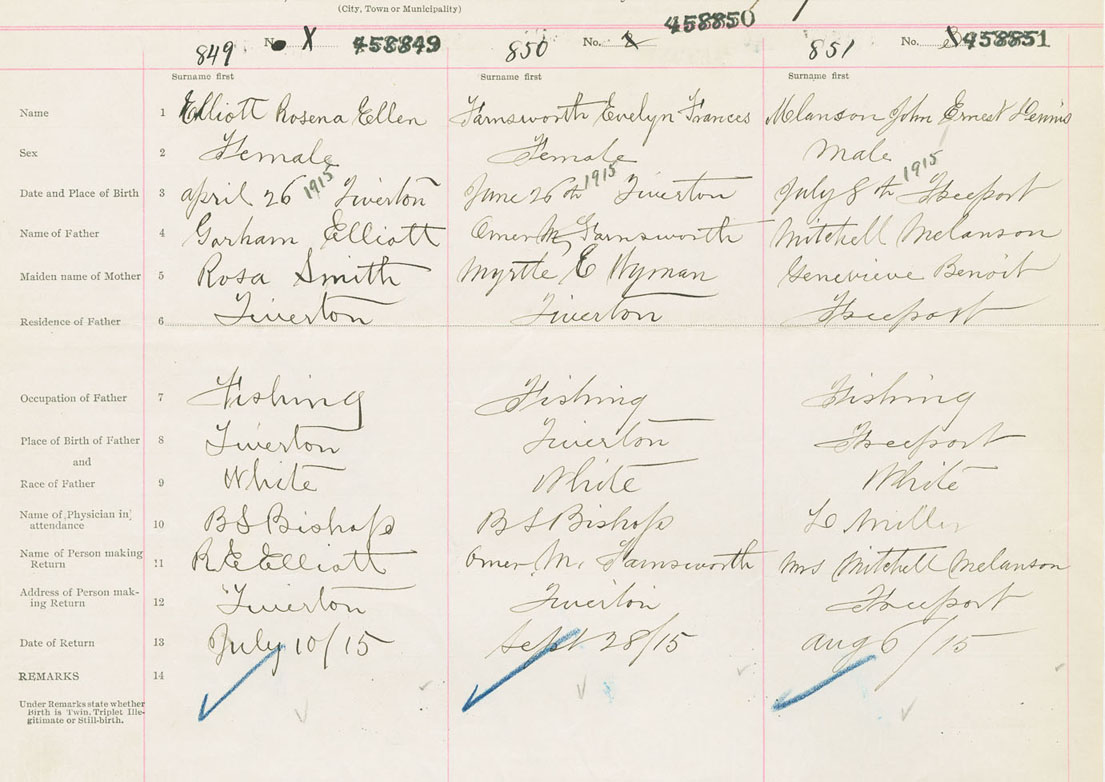 (City, Town or Municipality)
849 No. X 458849 850 No. 458850 851 No. 458851
Surname first Surname first Surname first
Name 1 Elliott Rosena Ellen Farnsworth Evelyn Frances Melanson John Ernest Dennis
Sex 2 Female Female Male
Date and Place of Birth 3 April 26 1915 Tiverton June 26th 1915 Tiverton July 8th 1915 Freeport
Name of Father 4 Gorham Elliott Omer M Farnsworth Mitchell Melanson
Maiden name of Mother 5 Rosa Smith Myrtle E Wyman Genevieve Benoit
Residence of Father 6 Tiverton Tiverton Freeport
Occupation of Father 7 Fishing Fishing Fishing
Place of Birth of Father 8 Tiverton Tiverton Freeport
and
Race of Father 9 White White White
Name of Physician in
attendance 10 B S Bishop B S Bishop Miller
Name of Person making
Return 11 R E Elliott Omer M. Farnsworth Mrs Mitchell Melanson
Address of Person mak-
ing Return 12 Tiverton Tiverton Freeport
Date of Return 13 July 10/15 Sept 28/15 Aug 6/15
REMARKS 14
Under Remarks state whether
Birth is Twin, Triplet Ille-
gitimate or Still-birth.